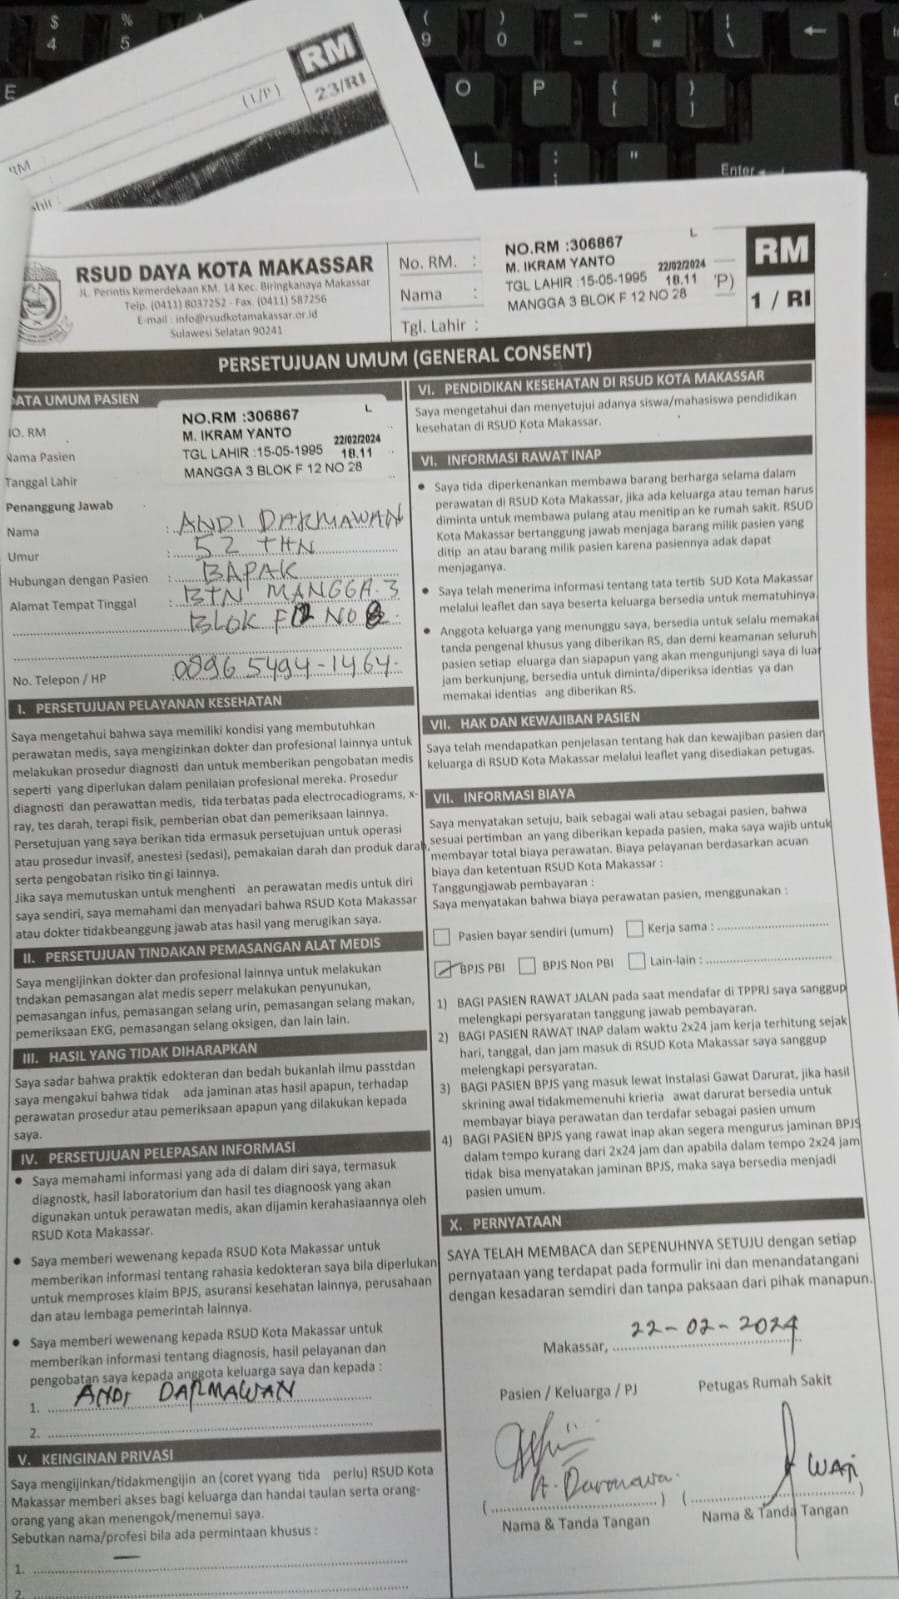 $
4
%
5
(
9
)
0
-
+
=
|
\
E
O
P
{
[
}
]
L
:
;
"
Enter
RM
23/RI
(L/P)
RM
:
RSUD DAYA KOTA MAKASSAR
JL. Perintis Kemerdekaan KM. 14 Kec. Biringkanaya Makassar
Telp. (0411) 8037252 - Fax. (0411) 587256
E-mail : info@rsudkotamakassar.or.id
Sulawesi Selatan 90241
No. RM. :
Nama :
Tgl. Lahir :
NO.RM :306867 L
M. IKRAM YANTO 22/02/2024
TGL LAHIR :15-05-1995 18.11
MANGGA 3 BLOK F 12 NO 28
P)
RM
1 / RI
PERSETUJUAN UMUM (GENERAL CONSENT)
ATA UMUM PASIEN
NO.RM :306867 L
M. IKRAM YANTO 22/02/2024
TGL LAHIR :15-05-1995 18.11
MANGGA 3 BLOK F 12 NO 28
IO. RM
Nama Pasien
Tanggal Lahir
Penanggung Jawab
Nama : ANDI DARMAWAN
Umur : 52 THN
Hubungan dengan Pasien : BAPAK
Alamat Tempat Tinggal : BTN MANGGA 3
BLOK F12 NO 8
No. Telepon / HP : 0896 5494-1464
I. PERSETUJUAN PELAYANAN KESEHATAN
Saya mengetahui bahwa saya memiliki kondisi yang membutuhkan
perawatan medis, saya mengizinkan dokter dan profesional lainnya untuk
melakukan prosedur diagnosti dan untuk memberikan pengobatan medis
seperti yang diperlukan dalam penilaian profesional mereka. Prosedur
diagnosti dan perawattan medis, tida terbatas pada electrocadiograms, x-
ray, tes darah, terapi fisik, pemberian obat dan pemeriksaan lainnya.
Persetujuan yang saya berikan tida ermasuk persetujuan untuk operasi
atau prosedur invasif, anestesi (sedasi), pemakaian darah dan produk darah,
serta pengobatan risiko tin gi lainnya.
Jika saya memutuskan untuk menghenti an perawatan medis untuk diri
saya sendiri, saya memahami dan menyadari bahwa RSUD Kota Makassar
atau dokter tidakbeanggung jawab atas hasil yang merugikan saya.
II. PERSETUJUAN TINDAKAN PEMASANGAN ALAT MEDIS
Saya mengijinkan dokter dan profesional lainnya untuk melakukan
tndakan pemasangan alat medis seperr melakukan penyunukan,
pemasangan infus, pemasangan selang urin, pemasangan selang makan,
pemeriksaan EKG, pemasangan selang oksigen, dan lain lain.
III. HASIL YANG TIDAK DIHARAPKAN
Saya sadar bahwa praktik edokteran dan bedah bukanlah ilmu passtdan
saya mengakui bahwa tidak ada jaminan atas hasil apapun, terhadap
perawatan prosedur atau pemeriksaan apapun yang dilakukan kepada
saya.
IV. PERSETUJUAN PELEPASAN INFORMASI
• Saya memahami informasi yang ada di dalam diri saya, termasuk
diagnostk, hasil laboratorium dan hasil tes diagnoosk yang akan
digunakan untuk perawatan medis, akan dijamin kerahasiaannya oleh
RSUD Kota Makassar.
• Saya memberi wewenang kepada RSUD Kota Makassar untuk
memberikan informasi tentang rahasia kedokteran saya bila diperlukan
untuk memproses klaim BPJS, asuransi kesehatan lainnya, perusahaan
dan atau lembaga pemerintah lainnya.
• Saya memberi wewenang kepada RSUD Kota Makassar untuk
memberikan informasi tentang diagnosis, hasil pelayanan dan
pengobatan saya kepada anggota keluarga saya dan kepada :
1. ANDI DARMAWAN
2.
V. KEINGINAN PRIVASI
Saya mengijinkan/tidakmengijin an (coret yyang tida perlu) RSUD Kota
Makassar memberi akses bagi keluarga dan handai taulan serta orang-
orang yang akan menengok/menemui saya.
Sebutkan nama/profesi bila ada permintaan khusus :
1. —
2.
VI. PENDIDIKAN KESEHATAN DI RSUD KOTA MAKASSAR
Saya mengetahui dan menyetujui adanya siswa/mahasiswa pendidikan
kesehatan di RSUD Kota Makassar.
VI. INFORMASI RAWAT INAP
• Saya tida diperkenankan membawa barang berharga selama dalam
perawatan di RSUD Kota Makassar, jika ada keluarga atau teman harus
diminta untuk membawa pulang atau menitip an ke rumah sakit. RSUD
Kota Makassar bertanggung jawab menjaga barang milik pasien yang
ditip an atau barang milik pasien karena pasiennya adak dapat
menjaganya.
• Saya telah menerima informasi tentang tata tertib SUD Kota Makassar
melalui leaflet dan saya beserta keluarga bersedia untuk mematuhinya
• Anggota keluarga yang menunggu saya, bersedia untuk selalu memakai
tanda pengenal khusus yang diberikan RS, dan demi keamanan seluruh
pasien setiap eluarga dan siapapun yang akan mengunjungi saya di luar
jam berkunjung, bersedia untuk diminta/diperiksa identias ya dan
memakai identias ang diberikan RS.
VII. HAK DAN KEWAJIBAN PASIEN
Saya telah mendapatkan penjelasan tentang hak dan kewajiban pasien dan
keluarga di RSUD Kota Makassar melalui leaflet yang disediakan petugas.
VII. INFORMASI BIAYA
Saya menyatakan setuju, baik sebagai wali atau sebagai pasien, bahwa
sesuai pertimban an yang diberikan kepada pasien, maka saya wajib untuk
membayar total biaya perawatan. Biaya pelayanan berdasarkan acuan
biaya dan ketentuan RSUD Kota Makassar :
Tanggungjawab pembayaran :
Saya menyatakan bahwa biaya perawatan pasien, menggunakan :
Pasien bayar sendiri (umum) Kerja sama :
BPJS PBI BPJS Non PBI Lain-lain :
1) BAGI PASIEN RAWAT JALAN pada saat mendafar di TPPRJ saya sanggup
melengkapi persyaratan tanggung jawab pembayaran.
2) BAGI PASIEN RAWAT INAP dalam waktu 2x24 jam kerja terhitung sejak
hari, tanggal, dan jam masuk di RSUD Kota Makassar saya sanggup
melengkapi persyaratan.
3) BAGI PASIEN BPJS yang masuk lewat Instalasi Gawat Darurat, jika hasil
skrining awal tidakmemenuhi krieria awat darurat bersedia untuk
membayar biaya perawatan dan terdafar sebagai pasien umum
4) BAGI PASIEN BPJS yang rawat inap akan segera mengurus jaminan BPJS
dalam tempo kurang dari 2x24 jam dan apabila dalam tempo 2x24 jam
tidak bisa menyatakan jaminan BPJS, maka saya bersedia menjadi
pasien umum.
X. PERNYATAAN
SAYA TELAH MEMBACA dan SEPENUHNYA SETUJU dengan setiap
pernyataan yang terdapat pada formulir ini dan menandatangani
dengan kesadaran semdiri dan tanpa paksaan dari pihak manapun.
Makassar, 22-02-2024
Pasien / Keluarga / PJ Petugas Rumah Sakit
A. Darmawa. WAR
(....................) (....................)
Nama & Tanda Tangan Nama & Tanda Tangan